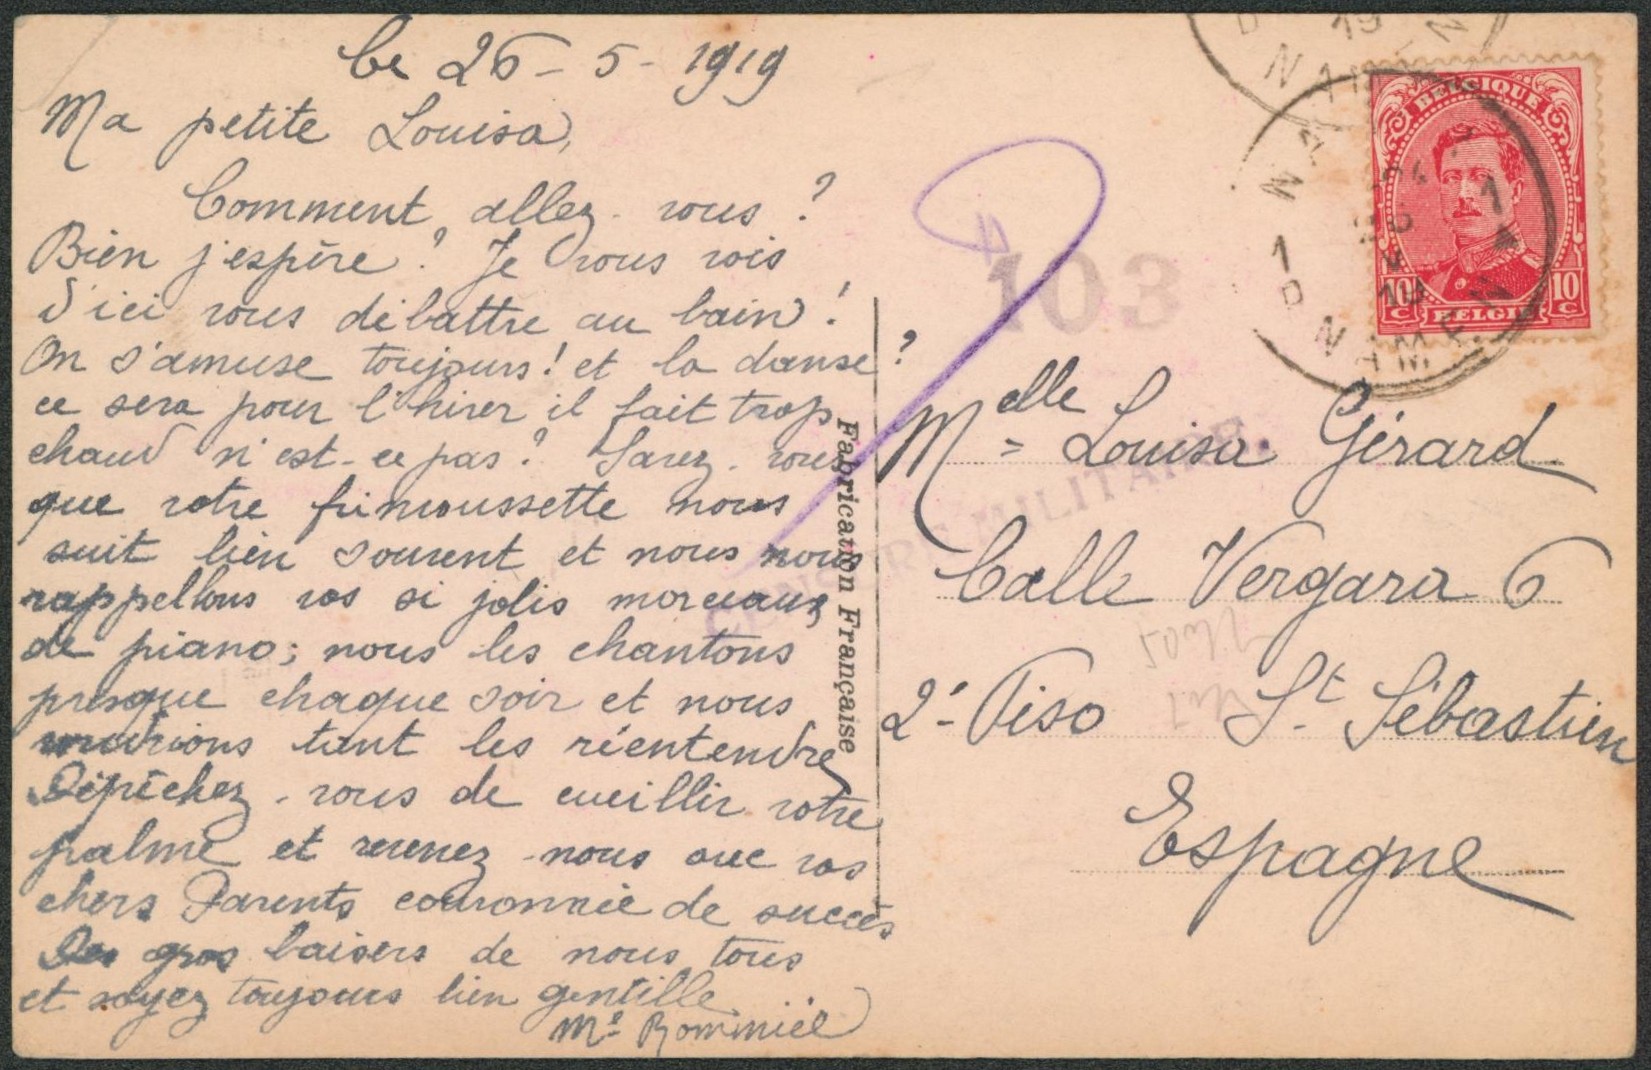 Le 26-5-1919
Ma petite Louisa,
Comment allez-vous?
Bien j'espère? Je vous vois
d'ici vous débattre au bain!
On s'amuse toujours! et la danse?
ce sera pour l'hiver il fait trop
chaud n'est-ce pas? Savez-vous
que votre frimoussette nous
suit bien souvent et nous nous
rappellons vos si jolis morceaux
de piano; nous les chantons
presque chaque soir et nous
voudrions tant les réentendre
Dépêchez-vous de cueillir votre
palme et revenez-nous avec vos
chers Parents couronnée de succès
Des gros baisers de nous tous
et soyez toujours bien gentille
Me
Fabrication Française
BELGIQUE
10 C
BELGIE
10 C
NAMUR
NAMEN
1
D
1
D
NAMEN
19
103
CENSURE MILITAIRE.
Melle Louisa Gérard
Calle Vergara 6
2e Piso St Sébastien
Espagne